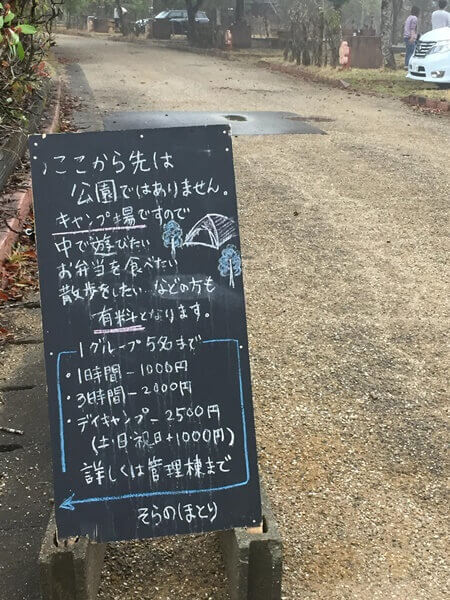 ここから先は
公園ではありません。
キャンプ場ですので
中で遊びたい
お弁当を食べたい
散歩をしたい などの方も
有料となります。
1グループ5名まで
・1時間-1000円
・3時間-2000円
・デイキャンプ-2500円
(土・日・祝日+1000円)
詳しくは管理棟まで
そらのほとり